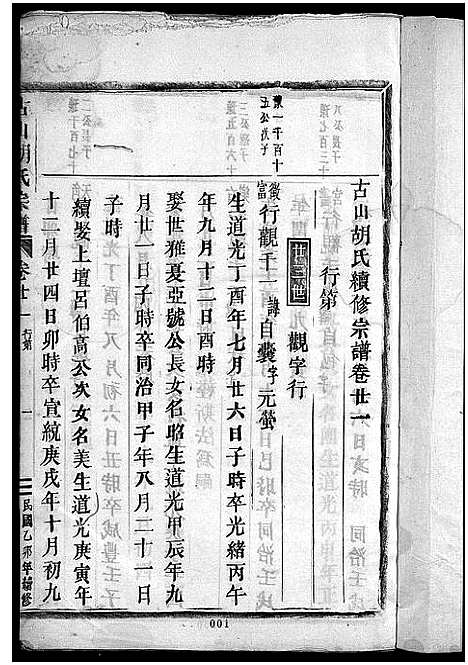 古山胡氏續修宗譜卷廿一
行第
廿三世 觀字行
豫一千百十
五公次子
徵富
行觀千一諱自囊字元螢
生道光丁酉年七月廿六日子時卒光緒丙午
年九月十二日酉時
娶世雅夏亞號公長女名昭生道光甲辰年九
月廿一日子時卒同治甲子年八月二十一日
子時
續娶上壇呂伯高公次女名美生道光庚寅年
十二月廿四日卯時卒宣統庚戌年十月初九
古山胡氏宗譜 卷廿一 行第 一 民國乙卯年續修
001